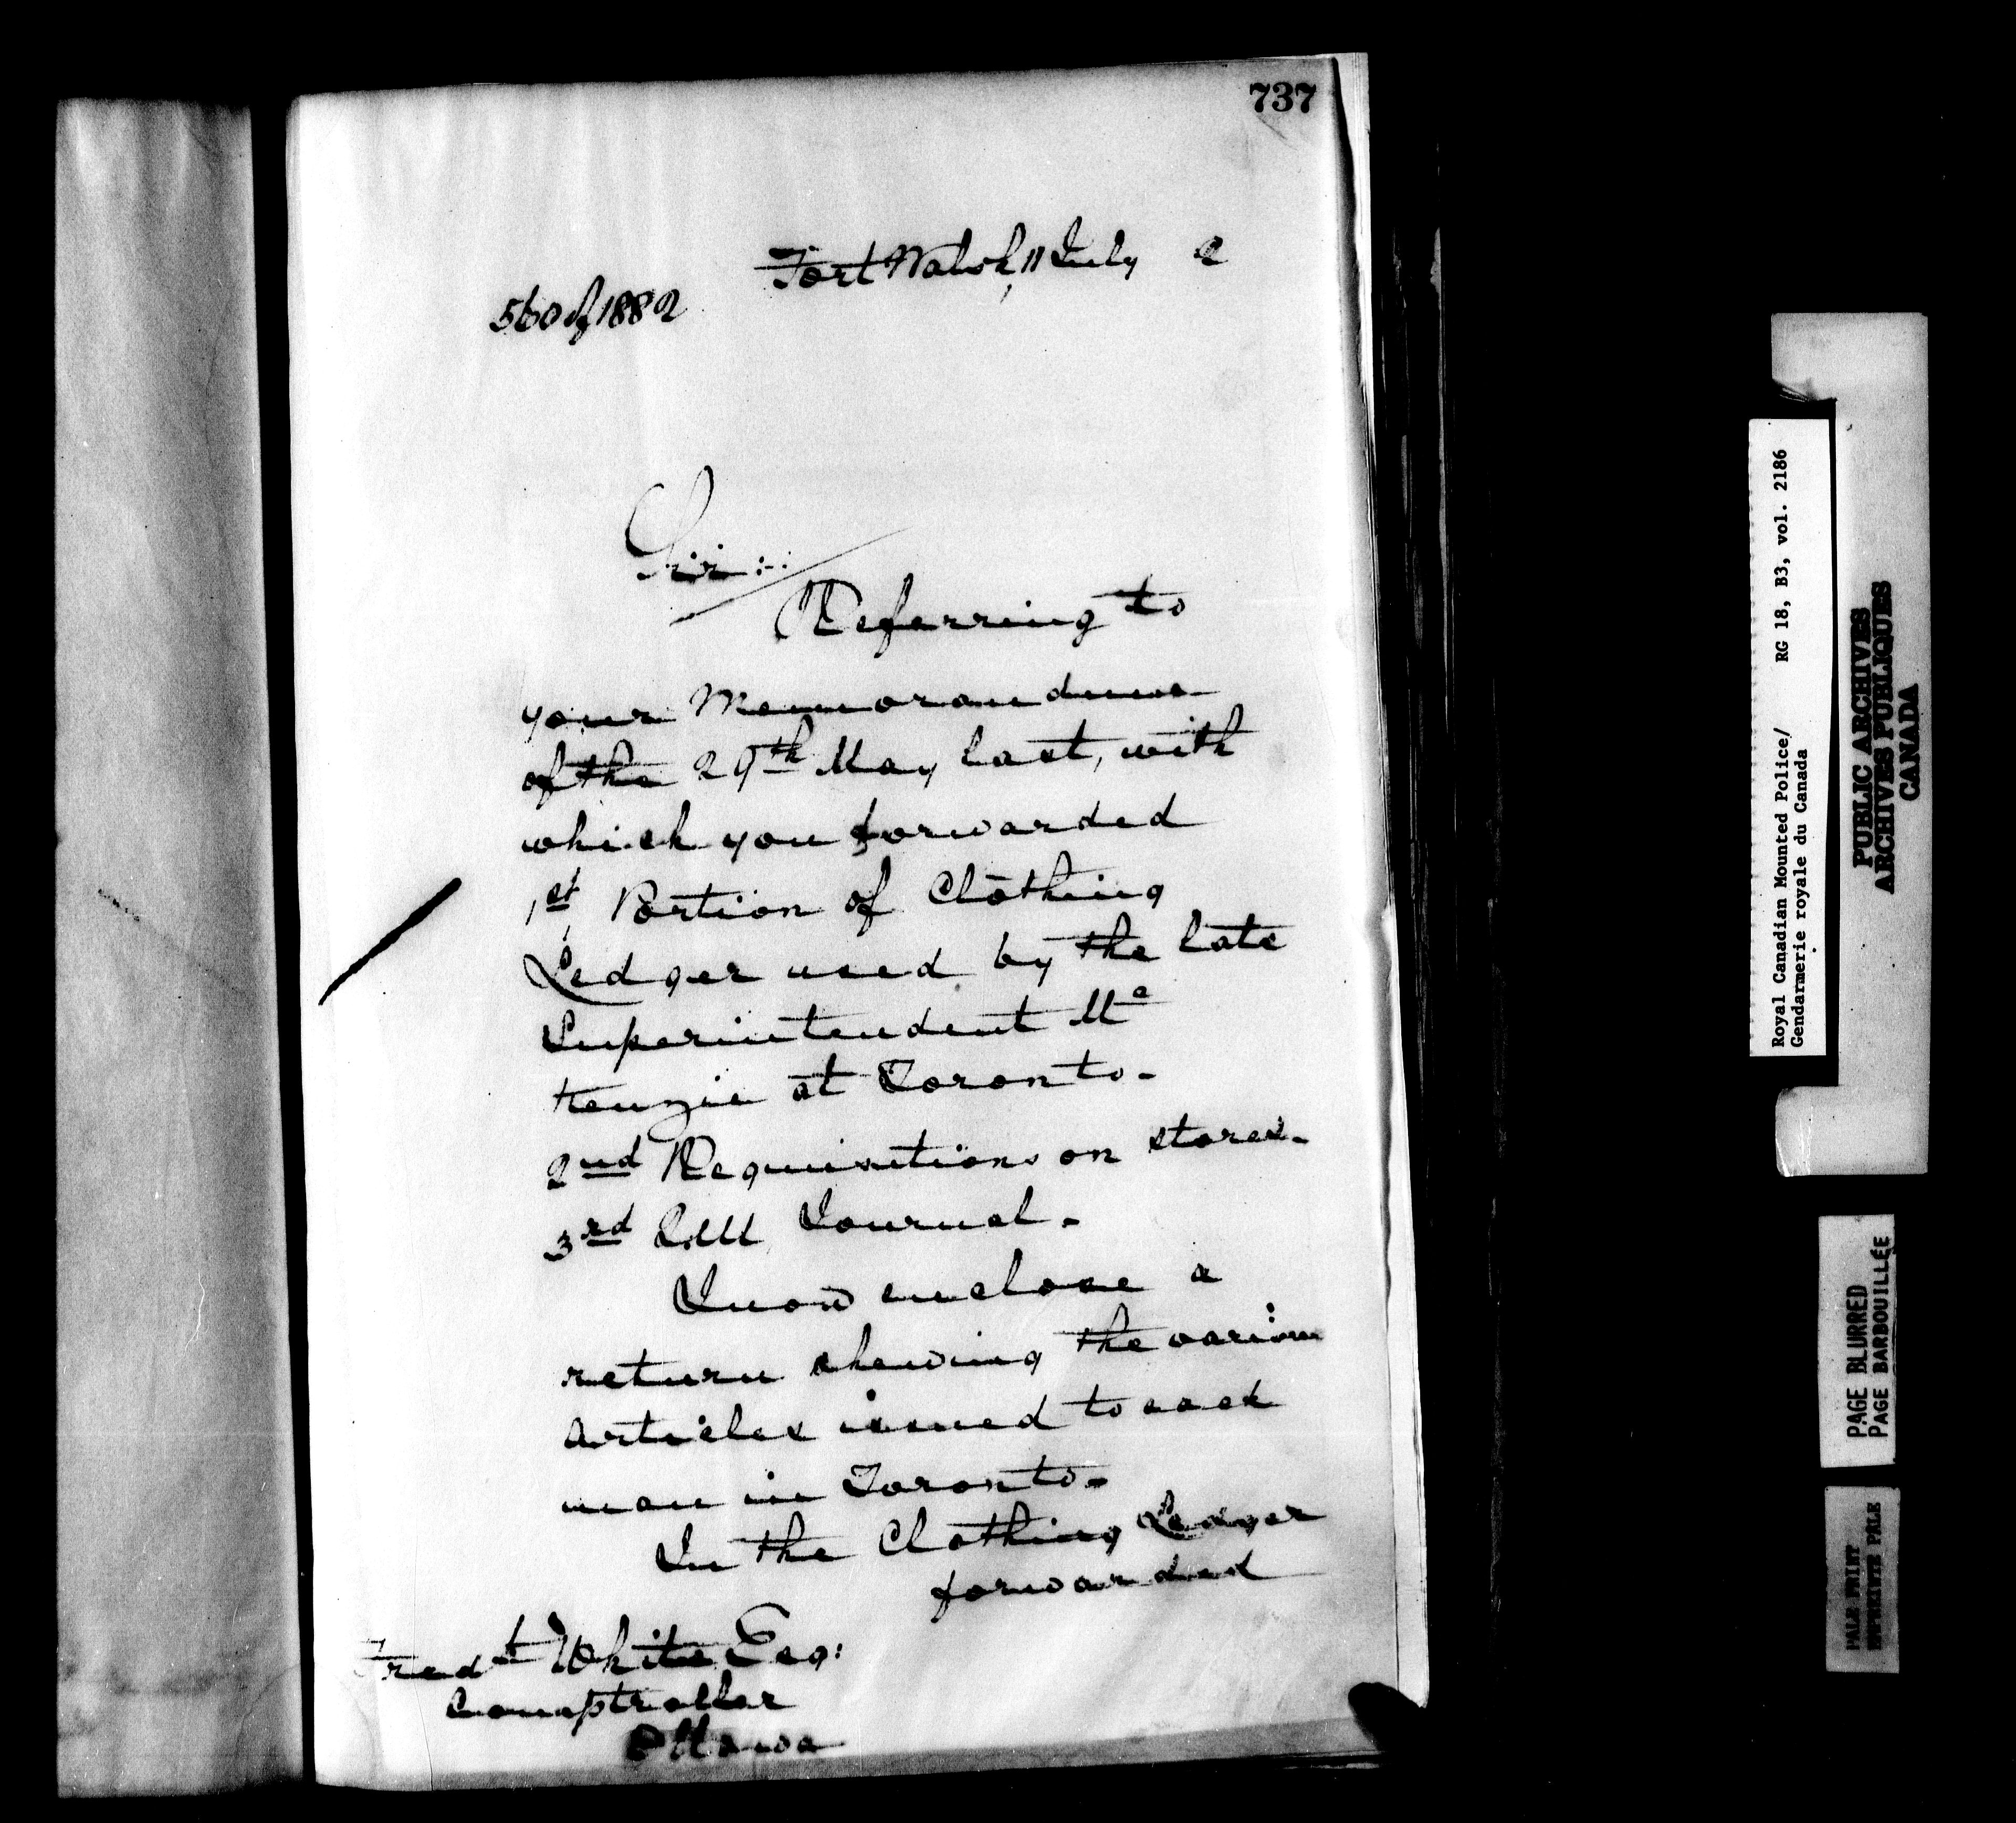 737
Fort Walsh, 11 July 2
560 of 1882
Sir:-
Referring to
your Memorandum
of the 29th May last, with
which you forwarded
1st Portion of Clothing
Ledger used by the late
Superintendent Mc
Kenzie at Toronto-
2nd Requisitions on stores-
3rd Q.M. Journal-
I now enclose a
return shewing the various
articles issued to each
man in Toronto-
In the Clothing Ledger
forwarded
Fredk White Esq:
Comptroller
Ottawa
Royal Canadian Mounted Police/ RG 18, B3, vol. 2186
Gendarmerie royale du Canada
PUBLIC ARCHIVES
ARCHIVES PUBLIQUES
CANADA
PAGE BLURRED
PAGE BARBOUILLÉE
PALE PRINT